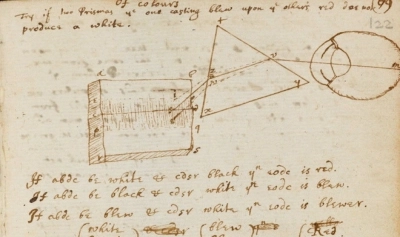 Of colours
Try if two Prismas yᵉ one casting blew upon yᵉ others red doe not 99
produce a white. 122
t
a c
r v
x y
q
s
If abdc be white & cdsr black yⁿ eodc is red.
If abdc be black & cdsr white yⁿ eodc is blew.
If abdc be blew & cdsr white yⁿ eodc is blewer.
(white (blew (Red